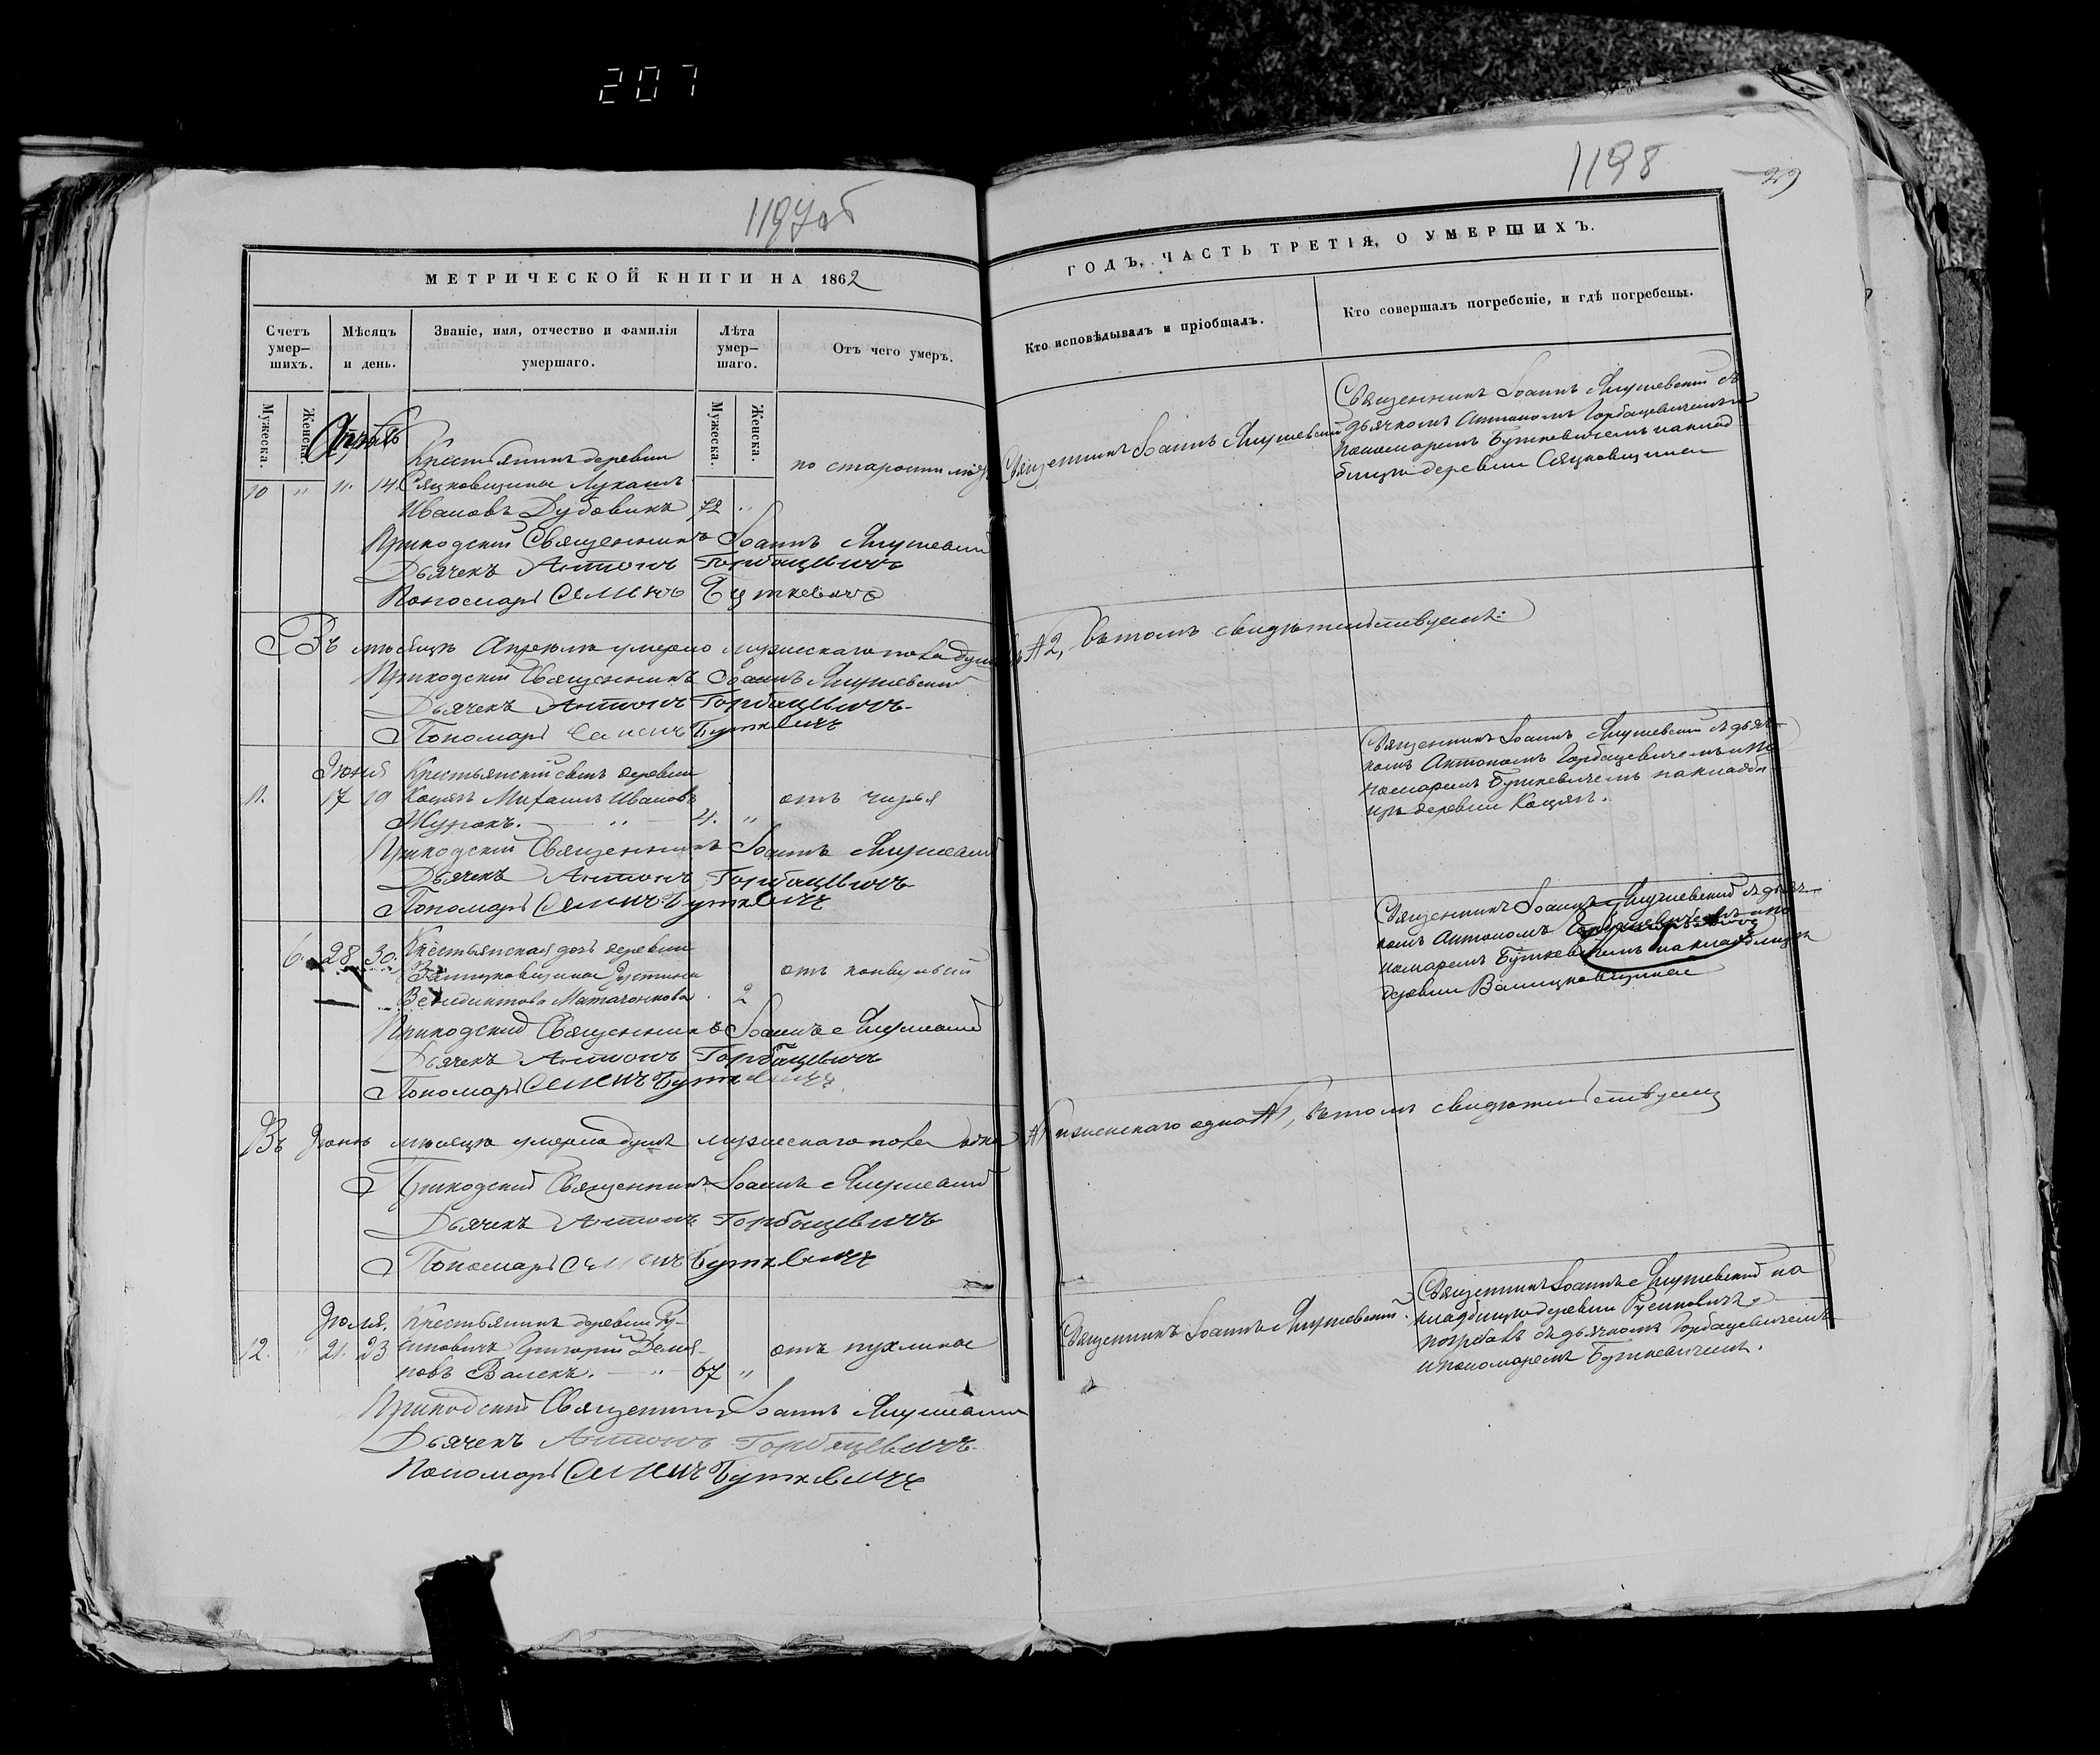 207
1197об
МЕТРИЧЕСКОЙ КНИГИ НА 1862
Счетъ умер–шихъ.
Мѣсяцъ и день.
Званіе, имя, отчество и фамилія умершаго.
Лѣта умер–шаго.
Отъ чего умеръ.
Мужеска.
Женска.
Мужеска.
Женска.
Апрѣль
Крестьянинъ деревни
10 " 11. 14. Сяцковщины Лукашъ
Ивановъ Дубовикъ 72 "
по старости
Приходскій Священникъ Іоаннъ
Дьячекъ Антонъ Горбацевичъ
Пономарь Семенъ Буткевичъ
Въ мѣсяцѣ Апрѣлѣ умерло мужескаго пола душъ
Приходскій Священникъ Іоаннъ
Дьячекъ Антонъ Горбацевичъ
Пономарь Семенъ Буткевичъ
Іюня Крестьянскій сынъ деревни
11. 17 19 Михаилъ Ивановъ отъ чирья
Журокъ. " 4. "
Приходскій Священникъ Іоаннъ
Дьячекъ Антонъ Горбацевичъ
Пономарь Семенъ Буткевичъ
Крестьянская дочь деревни
6. 28 30. Іустина отъ конвульсій
Венедиктова 2
Приходскій Священникъ Іоаннъ
Дьячекъ Антонъ Горбацевичъ
Пономарь Семенъ Буткевичъ
Въ Іюнѣ мѣсяцѣ умерло душъ мужескаго пола одна
Приходскій Священникъ Іоаннъ
Дьячекъ Антонъ Горбацевичъ
Пономарь Семенъ Буткевичъ
Іюля. Крестьянинъ деревни Ру-
12. " 21. 23 синовичъ Григорій Демья- отъ пухлины
новъ Валекъ. " 67 "
Приходскій Священникъ Іоаннъ
Дьячекъ Антонъ Горбацевичъ
Пономарь Семенъ Буткевичъ
1198
29
ГОДЪ, ЧАСТЬ ТРЕТІЯ, О УМЕРШИХЪ.
Кто исповѣдывалъ и пріобщалъ.
Кто совершалъ погребеніе, и гдѣ погребены.
Священникъ Іоаннъ
Священникъ Іоаннъ съ
дьячкомъ Антономъ Горбацевичемъ и
пономаремъ Буткевичемъ на клад
бищѣ деревни Сяцковщины
№2, въ томъ свидѣтельствуемъ:
Священникъ Іоаннъ съ дьяч
комъ Антономъ Горбацевичемъ и по
номаремъ Буткевичемъ на кладби
щѣ деревни
Священникъ Іоаннъ съ дьяч
комъ Антономъ Горбацевичемъ и по
номаремъ Буткевичемъ на кладбищѣ
деревни
№1 и женскаго одна №1, въ томъ свидѣтельствуемъ
Священникъ Іоаннъ
Священникъ Іоаннъ на
кладбищѣ деревни Русиновичъ
погребалъ съ дьячкомъ Горбацевичемъ
и пономаремъ Буткевичемъ.